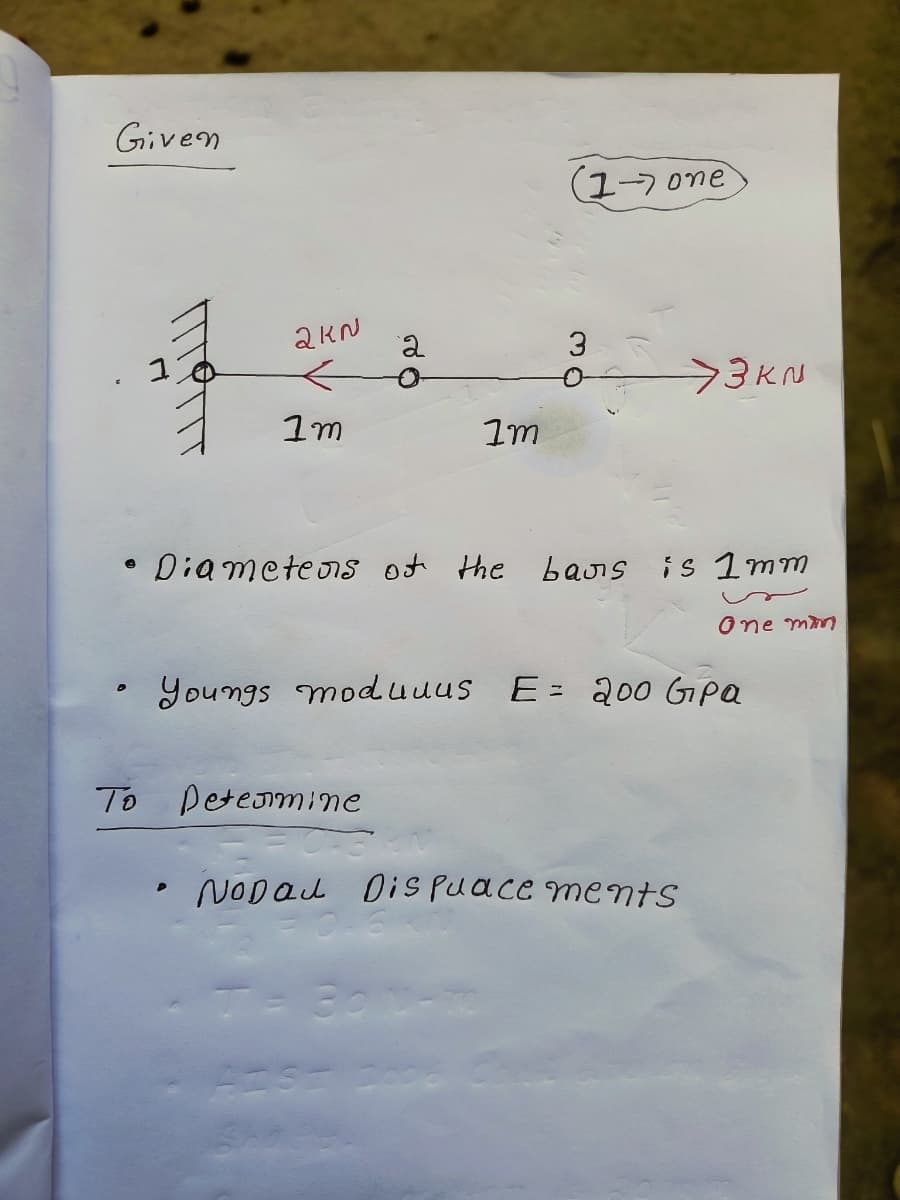 Given
(1→ one)
2KN
2
3
1
3KN
1m
1m
• Diameters of the bars is 1mm
One mm
• Youngs modulus E = 200 GPa
To Determine
• NODal Displacements
T = 30 N-m